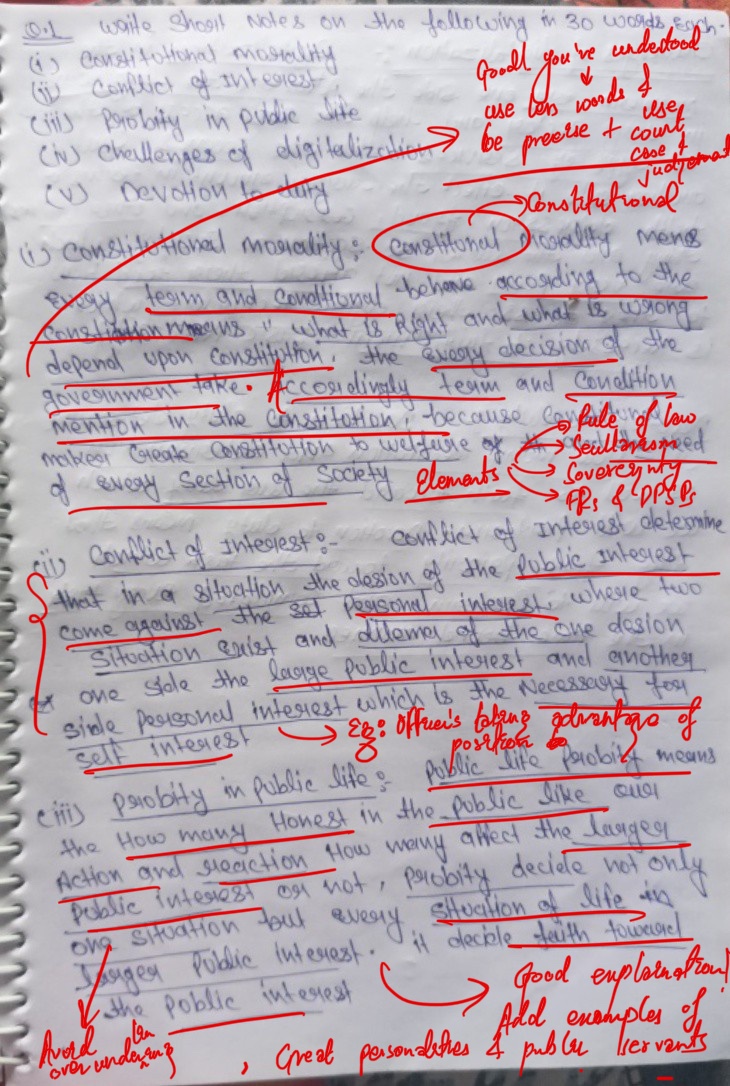 Q.1 Write Short Notes on the following in 30 words each.
(i) Constitutional morality
(ii) Conflict of Interest
(iii) Probity in public life
(iv) Challenges of digitalization
(v) Devotion to duty
Good! you've understood
use less words &
be precise + use
count
case &
judgement
Constitutional
(i) Constitutional morality :- Constitonal morality menes
every term and conditional behave according to the
Constitution means " what is Right and what is wrong
depend upon constitution, the every decision of the
government take. Accordingly term and Condition
mention in the constitution, because
maker create Constitution to welfare of
of every Section of Society
Elements
Rule of law
Secularism
Sovereignty
FRs & DPSPs
(ii) Conflict of Interest :- Conflict of Interest determine
that in a situation the desion of the public interest
come against the set Personal interest, where two
Situation exist and dilemel of the one desion
one side the large public interest and another
side personal interest which is the Necessary for
self interest
Eg: Officer's taking advantage of
position
(iii) Probity in Public life :- Public life Probity means
the How many Honest in the public like our
Action and reaction How many affect the larger
Public interest or not, Probity decide not only
one situation but every situation of life in
larger Public interest. it decide faith toward
the public interest
Good explanation!
Add examples of
Great personalities & public servants
Avoid
over